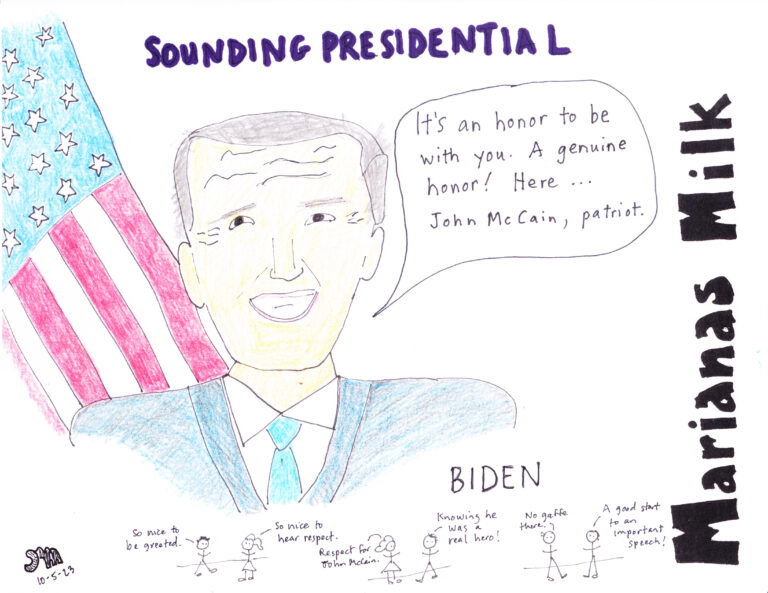 SOUNDING PRESIDENTIAL
It's an honor to be
with you. A genuine
honor! Here ...
John McCain, patriot.
Marianas Milk
BIDEN
So nice to
be greeted.
So nice to
hear respect.
Respect for
John McCain.
Knowing he
was a
real hero!
No gaffe
there!
A good start
to an
important
speech!
10-5-23